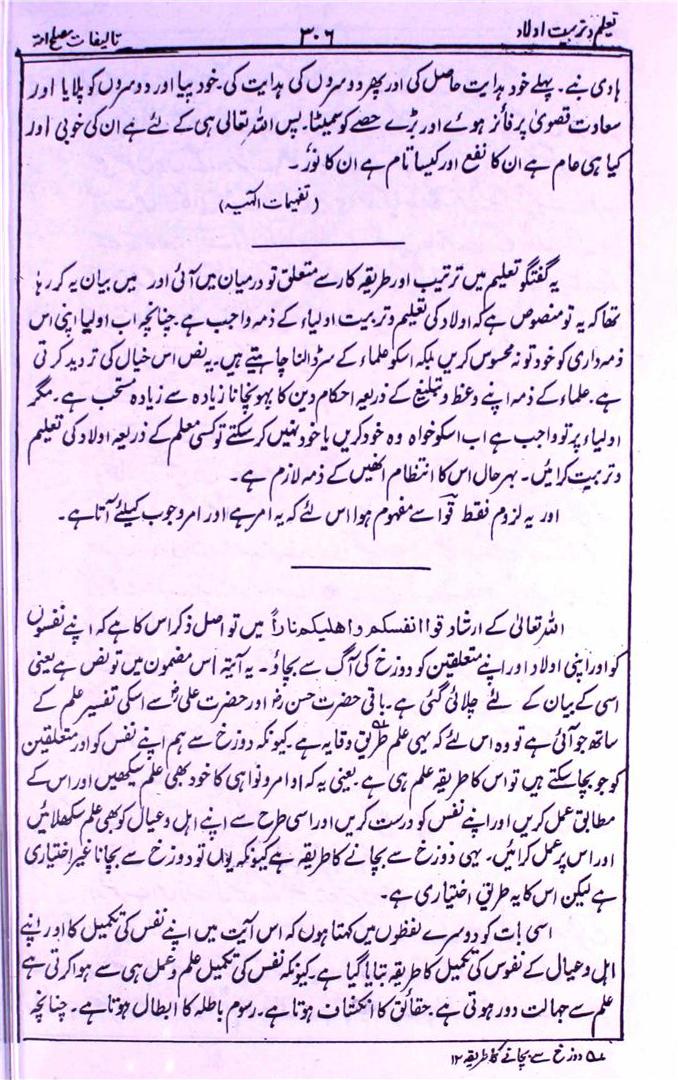 تعلیم و تربیت اولاد
۳۰۶
تالیفات مصلح امۃ
ہادی بنے۔ پہلے خود ہدایت حاصل کی اور پھر دوسروں کی ہدایت کی۔ خود پیا اور دوسروں کو پلایا اور
سعادت قصویٰ پر فائز ہوئے اور بڑے حصے کو سمیٹا۔ پس اللہ تعالی ہی کے لئے ہے ان کی خوبی اور
کیا ہی عام ہے ان کا نفع اور کیسا تام ہے ان کا نور۔
(تفہیمات الٰہیہ)
یہ گفتگو تعلیم میں ترتیب اور طریقہ کار سے متعلق تو درمیان میں آئی اور میں بیان یہ کر رہا
تھا کہ یہ تو منصوص ہے کہ اولاد کی تعلیم و تربیت اولیاء کے ذمہ واجب ہے چنانچہ اب اولیا اپنی اس
ذمہ داری کو خود تو نہ محسوس کریں بلکہ اسکو علماء کے سر ڈالنا چاہتے ہیں۔ یہ نص اس خیال کی تردید کرتی
ہے۔ علماء کے ذمہ اپنے وعظ و تبلیغ کے ذریعہ احکام دین کا پہونچانا زیادہ سے زیادہ مستحب ہے۔ مگر
اولیاء پر تو واجب ہے اب اسکو خواہ وہ خود کریں یا خود نہیں کر سکتے تو کسی معلم کے ذریعہ اولاد کی تعلیم
و تربیت کرائیں۔ بہر حال اس کا انتظام انھیں کے ذمہ لازم ہے۔
اور یہ لزوم فقط قُوْا سے مفہوم ہوا اس لئے کہ یہ امر ہے اور امر وجوب کیلئے آتا ہے۔
اللہ تعالیٰ کے ارشاد قوا انفسکم و اھلیکم ناراً میں تو اصل ذکر اس کا ہے کہ اپنے نفسوں
کو اور اپنی اولاد اور اپنے متعلقین کو دوزخ کی آگ سے بچاؤ۔ یہ آیۃ اس مضمون میں تو نص ہے یعنی
اسی کے بیان کے لئے چلائی گئی ہے۔ باقی حضرت حسنؓ اور حضرت علیؓ سے اسکی تفسیر علم کے
ساتھ جو آئی ہے تو وہ اس لئے کہ یہی علم طریق وقایہ ہے۔ کیونکہ دوزخ سے ہم اپنے نفس کو اور متعلقین
کو جو بچا سکتے ہیں تو اس کا طریقہ علم ہی ہے۔ یعنی یہ کہ اوامر و نواہی کا خود بھی علم سیکھیں اور اس کے
مطابق عمل کریں اور اپنے نفس کو درست کریں اور اسی طرح سے اپنے اہل و عیال کو بھی علم سکھلائیں
اور اس پر عمل کرائیں۔ یہی دوزخ سے بچانے کا طریقہ ہے کیونکہ یوں تو دوزخ سے بچانا غیر اختیاری
ہے لیکن اس کا یہ طریق اختیاری ہے۔
اسی بات کو دوسرے لفظوں میں کہتا ہوں کہ اس آیت میں اپنے نفس کی تکمیل کا اور اپنے
اہل و عیال کے نفوس کی تکمیل کا طریقہ بتایا گیا ہے۔ کیونکہ نفس کی تکمیل علم و عمل ہی سے ہوا کرتی ہے
علم سے جہالت دور ہوتی ہے۔ حقائق کا انکشاف ہوتا ہے۔ رسوم باطلہ کا ابطال ہوتا ہے۔ چنانچہ
دوزخ سے بچانے کا طریقہ ۱۲